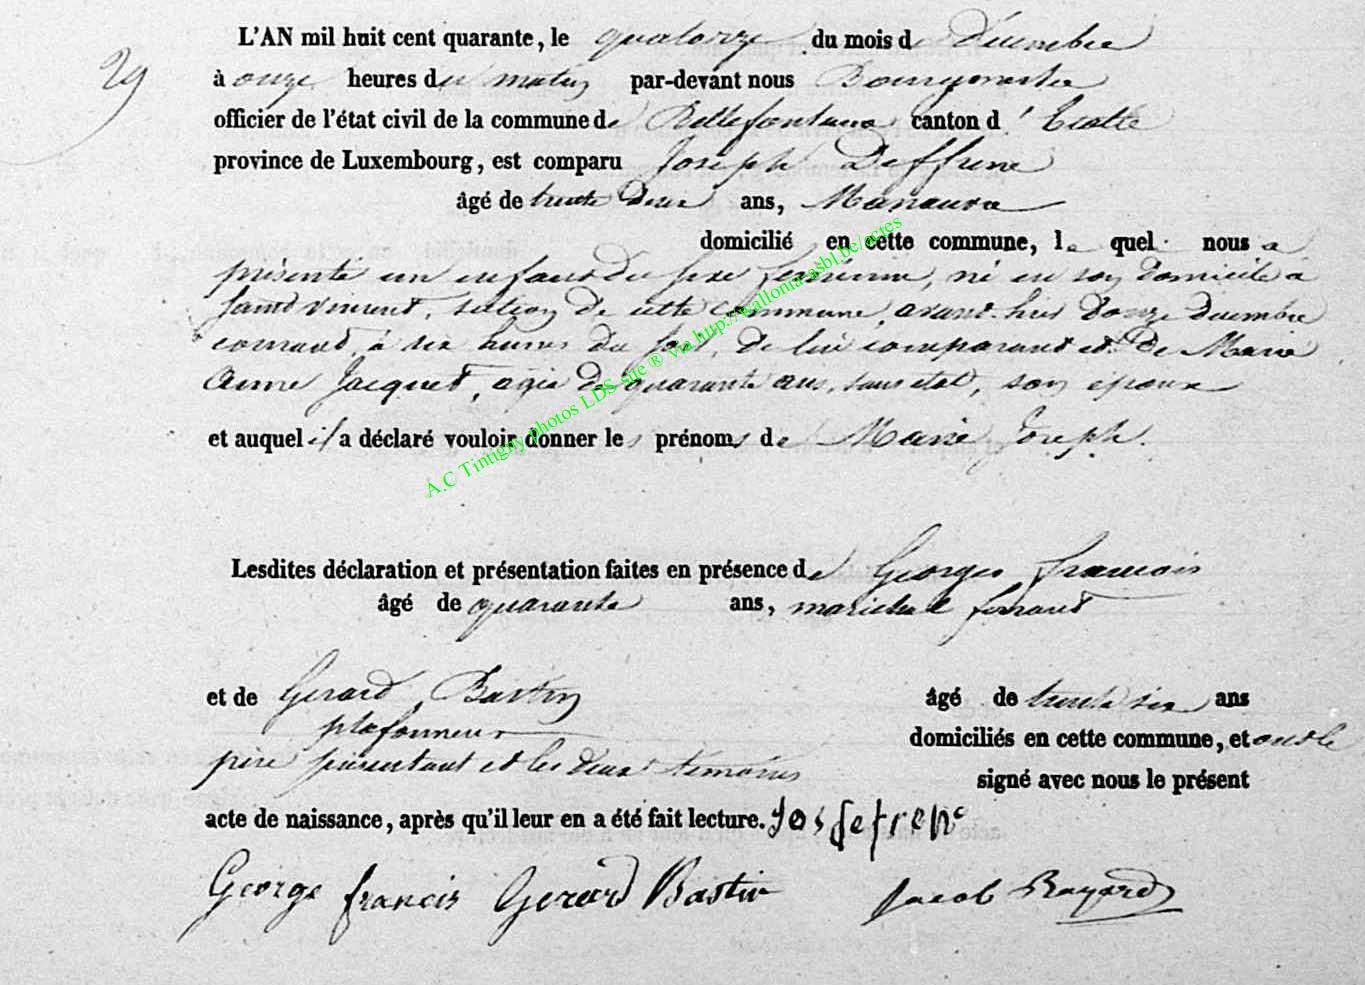 29
L'AN mil huit cent quarante, le quatorze du mois de Décembre
à onze heures du matin par-devant nous Bourgmestre
officier de l'état civil de la commune de Bellefontaine canton d'Etalle
province de Luxembourg, est comparu Joseph Deffrene
âgé de trente deux ans, Manœuvre
domicilié en cette commune, lequel nous a
présenté un enfant du sexe féminin, né en son domicile à
Saint vincent, section de cette commune, avant hier douze décembre
courant, à six heures du soir, de lui comparant et de Marie
Anne Jacquet, agée de quarante ans, sans état, son épouse
et auquel il a déclaré vouloir donner les prénoms de Marie Joseph.
Lesdites déclaration et présentation faites en présence de Georges francois
âgé de quarante ans, maréchal ferrant
et de Gerard Bastin âgé de trente six ans
plafonneur domiciliés en cette commune, et ont le
père présentant et les deux témoins signé avec nous le présent
acte de naissance, après qu'il leur en a été fait lecture. Jos defrene
George francis Gerard Bastin Jacob Rayard
A.C Tintigny photos LDS site ® via http://walloniaasbl.be/actes